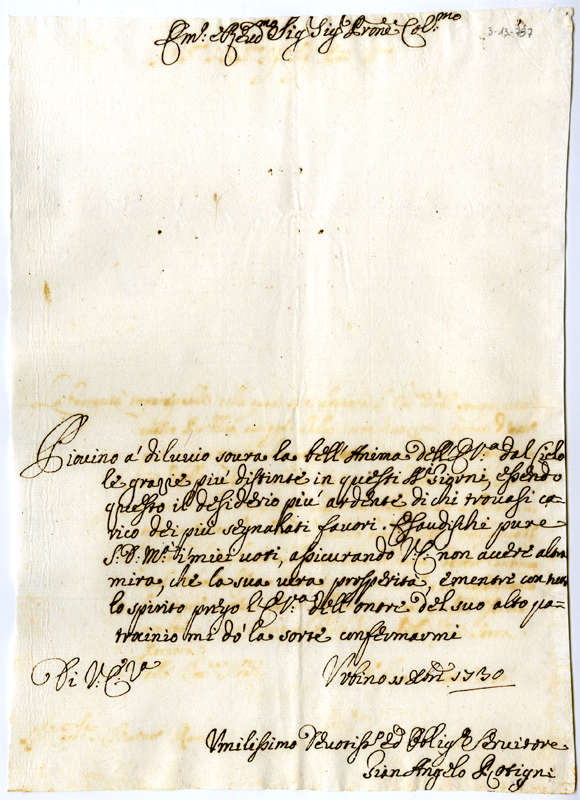 Em.o e Reud.mo Sig.r Sig.r Prone Col.mo
3-13-737
Piouino à diluuio soura la bell'Anima dell'E.V.a dal Cielo
le grazie più distinte in questi S.ti Giorni, essendo
questo il desiderio più ardente di chi trouasi ca=
rico dei più segnalati fauori. Esaudischi pure
S.D.M.tà i miei uoti, assicurando V.E. non auere altra
mira, che la sua uera prosperità, e mentre con tutto
lo spirito prego l'E.V.a dell'onore del suo alto pa=
trocinio mi dò la sorte confermarmi
Di V.E.V.a
Vrbino 11 Xbre 1730
Vmilissimo Deuotiss.o ed Oblig.o Seruitore
Gian Angelo Rotigni